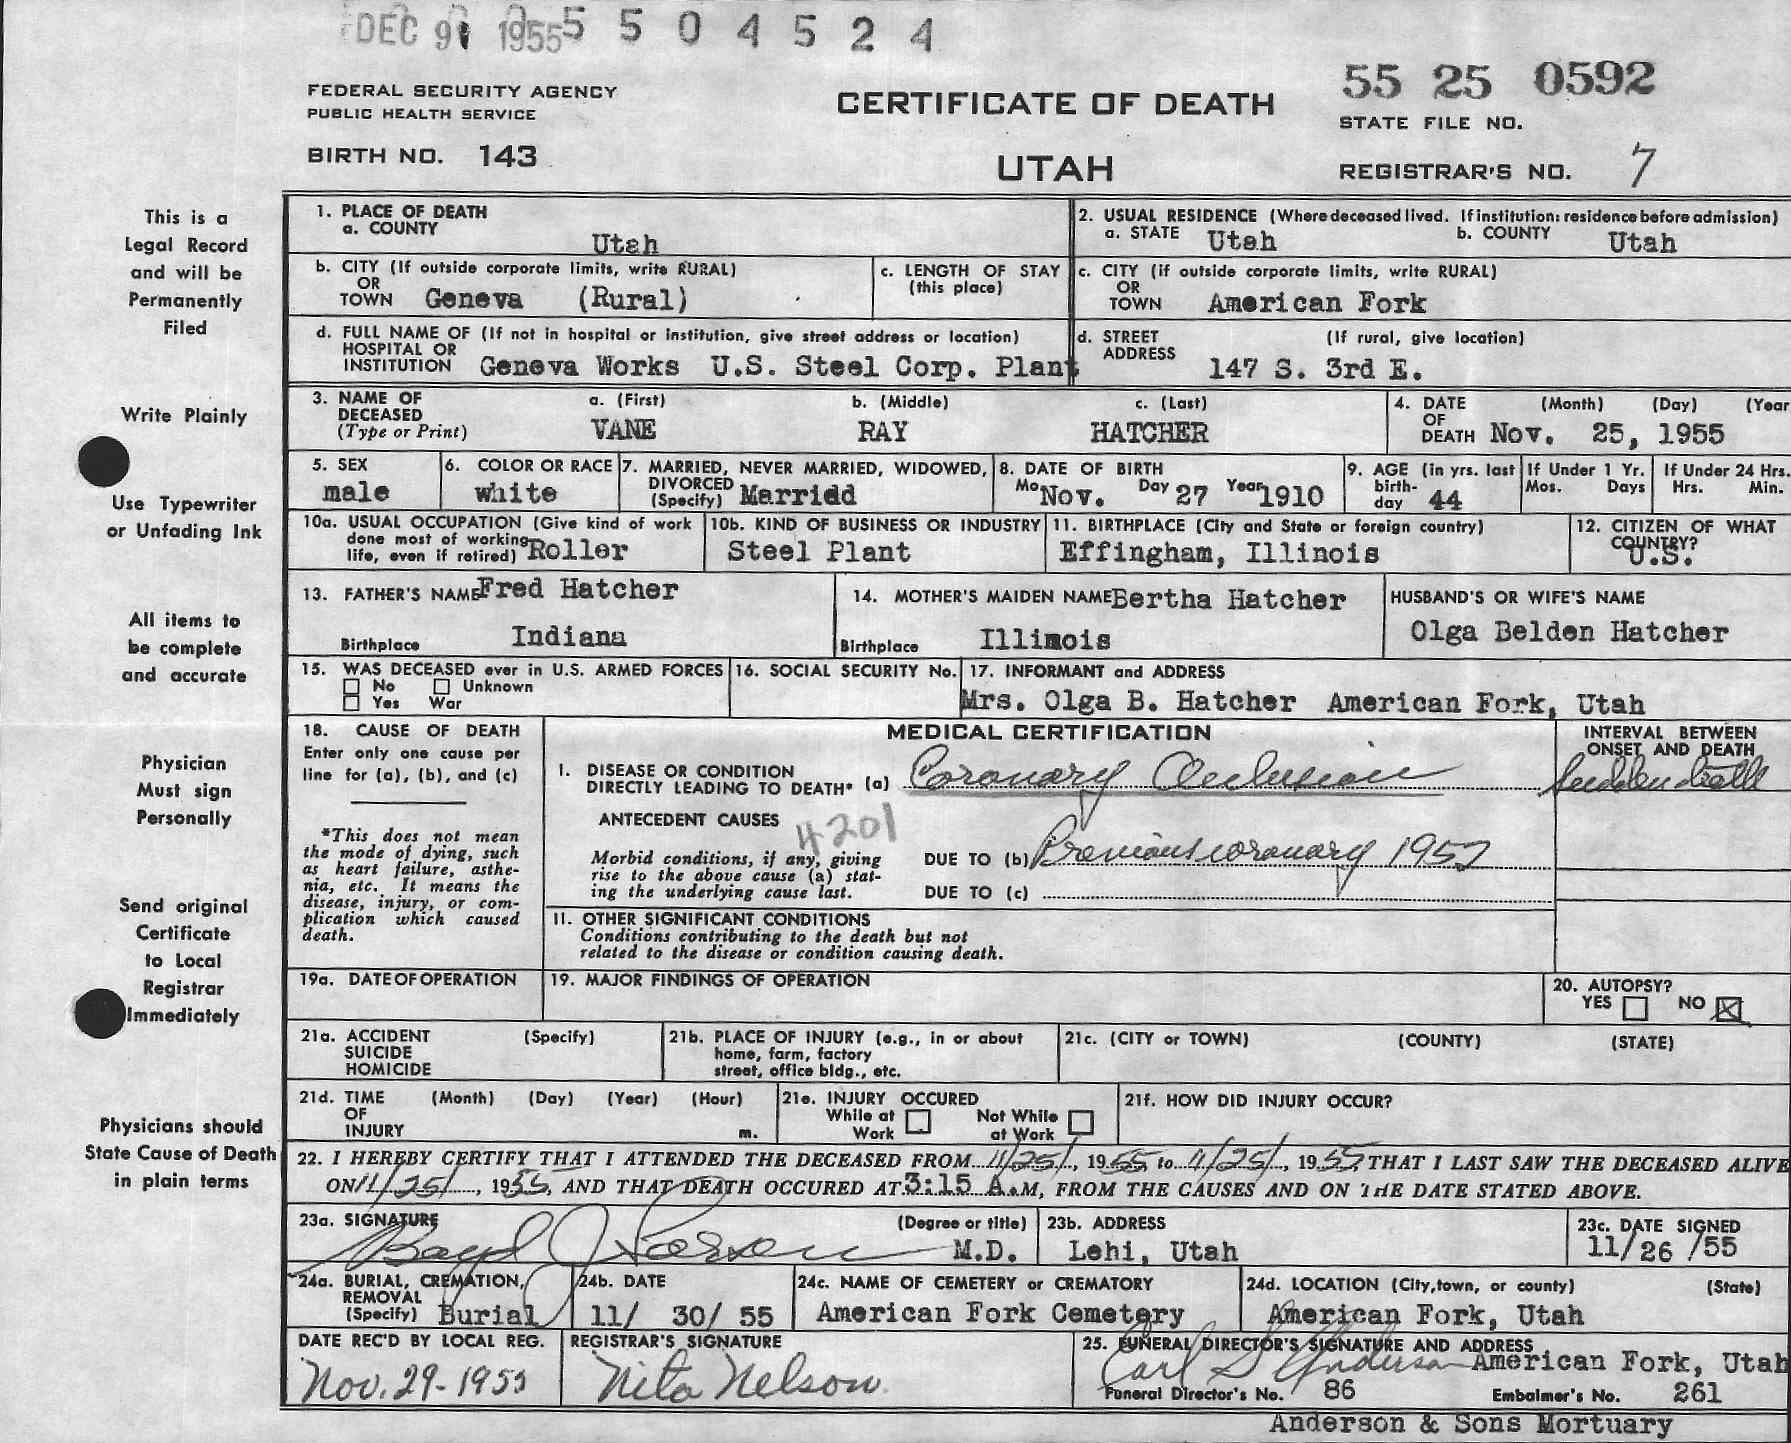 DEC 9 1955 5 5 0 4 5 2 4
FEDERAL SECURITY AGENCY
PUBLIC HEALTH SERVICE
BIRTH NO. 143
CERTIFICATE OF DEATH
UTAH
55 25 0592
STATE FILE NO.
REGISTRAR'S NO. 7
This is a
Legal Record
and will be
Permanently
Filed
Write Plainly
Use Typewriter
or Unfading Ink
All items to
be complete
and accurate
Physician
Must sign
Personally
Send original
Certificate
to Local
Registrar
Immediately
Physicians should
State Cause of Death
in plain terms
1. PLACE OF DEATH
a. COUNTY
Utah
2. USUAL RESIDENCE (Where deceased lived. If institution: residence before admission)
a. STATE Utah b. COUNTY Utah
b. CITY (If outside corporate limits, write RURAL)
OR
TOWN Geneva (Rural)
c. LENGTH OF STAY
(this place)
c. CITY (if outside corporate limits, write RURAL)
OR
TOWN American Fork
d. FULL NAME OF (If not in hospital or institution, give street address or location)
HOSPITAL OR
INSTITUTION Geneva Works U.S. Steel Corp. Plant
d. STREET (If rural, give location)
ADDRESS
147 S. 3rd E.
3. NAME OF a. (First) b. (Middle) c. (Last)
DECEASED
(Type or Print) VANE RAY HATCHER
4. DATE (Month) (Day) (Year
OF
DEATH Nov. 25, 1955
5. SEX
male
6. COLOR OR RACE
white
7. MARRIED, NEVER MARRIED, WIDOWED,
DIVORCED
(Specify) Marridd
8. DATE OF BIRTH
Mo Nov. Day 27 Year 1910
9. AGE (in yrs. last
birth-
day 44
If Under 1 Yr.
Mos. Days
If Under 24 Hrs.
Hrs. Min.
10a. USUAL OCCUPATION (Give kind of work
done most of working
life, even if retired) Roller
10b. KIND OF BUSINESS OR INDUSTRY
Steel Plant
11. BIRTHPLACE (City and State or foreign country)
Effingham, Illinois
12. CITIZEN OF WHAT
COUNTRY?
U.S.
13. FATHER'S NAME Fred Hatcher
Birthplace Indiana
14. MOTHER'S MAIDEN NAME Bertha Hatcher
Birthplace Illinois
HUSBAND'S OR WIFE'S NAME
Olga Belden Hatcher
15. WAS DECEASED ever in U.S. ARMED FORCES
No Unknown
Yes War
16. SOCIAL SECURITY No.
17. INFORMANT and ADDRESS
Mrs. Olga B. Hatcher American Fork, Utah
18. CAUSE OF DEATH
Enter only one cause per
line for (a), (b), and (c)
*This does not mean
the mode of dying, such
as heart failure, asthe-
nia, etc. It means the
disease, injury, or com-
plication which caused
death.
MEDICAL CERTIFICATION
INTERVAL BETWEEN
ONSET AND DEATH
I. DISEASE OR CONDITION
DIRECTLY LEADING TO DEATH* (a) Coronary Occlusion Sudden death
ANTECEDENT CAUSES 4201
Morbid conditions, if any, giving
rise to the above cause (a) stat-
ing the underlying cause last.
DUE TO (b) Previous coronary 1952
DUE TO (c)
II. OTHER SIGNIFICANT CONDITIONS
Conditions contributing to the death but not
related to the disease or condition causing death.
19a. DATE OF OPERATION
19. MAJOR FINDINGS OF OPERATION
20. AUTOPSY?
YES NO X
21a. ACCIDENT (Specify)
SUICIDE
HOMICIDE
21b. PLACE OF INJURY (e.g., in or about
home, farm, factory
street, office bldg., etc.
21c. (CITY or TOWN) (COUNTY) (STATE)
21d. TIME (Month) (Day) (Year) (Hour)
OF
INJURY m.
21e. INJURY OCCURED
While at Not While
Work at Work
21f. HOW DID INJURY OCCUR?
22. I HEREBY CERTIFY THAT I ATTENDED THE DECEASED FROM 11/25/, 1955, to 11/25/, 1955, THAT I LAST SAW THE DECEASED ALIVE
ON 11/25/, 1955, AND THAT DEATH OCCURED AT 3:15 A.M, FROM THE CAUSES AND ON THE DATE STATED ABOVE.
23a. SIGNATURE (Degree or title)
Boyd J Larson M.D.
23b. ADDRESS
Lehi, Utah
23c. DATE SIGNED
11/26 /55
24a. BURIAL, CREMATION,
REMOVAL
(Specify) Burial
24b. DATE
11/ 30/ 55
24c. NAME OF CEMETERY or CREMATORY
American Fork Cemetery
24d. LOCATION (City, town, or county) (State)
American Fork, Utah
DATE REC'D BY LOCAL REG.
Nov. 29-1955
REGISTRAR'S SIGNATURE
Nita Nelson
25. FUNERAL DIRECTOR'S SIGNATURE AND ADDRESS
Carl S Anderson American Fork, Utah
Funeral Director's No. 86 Embalmer's No. 261
Anderson & Sons Mortuary